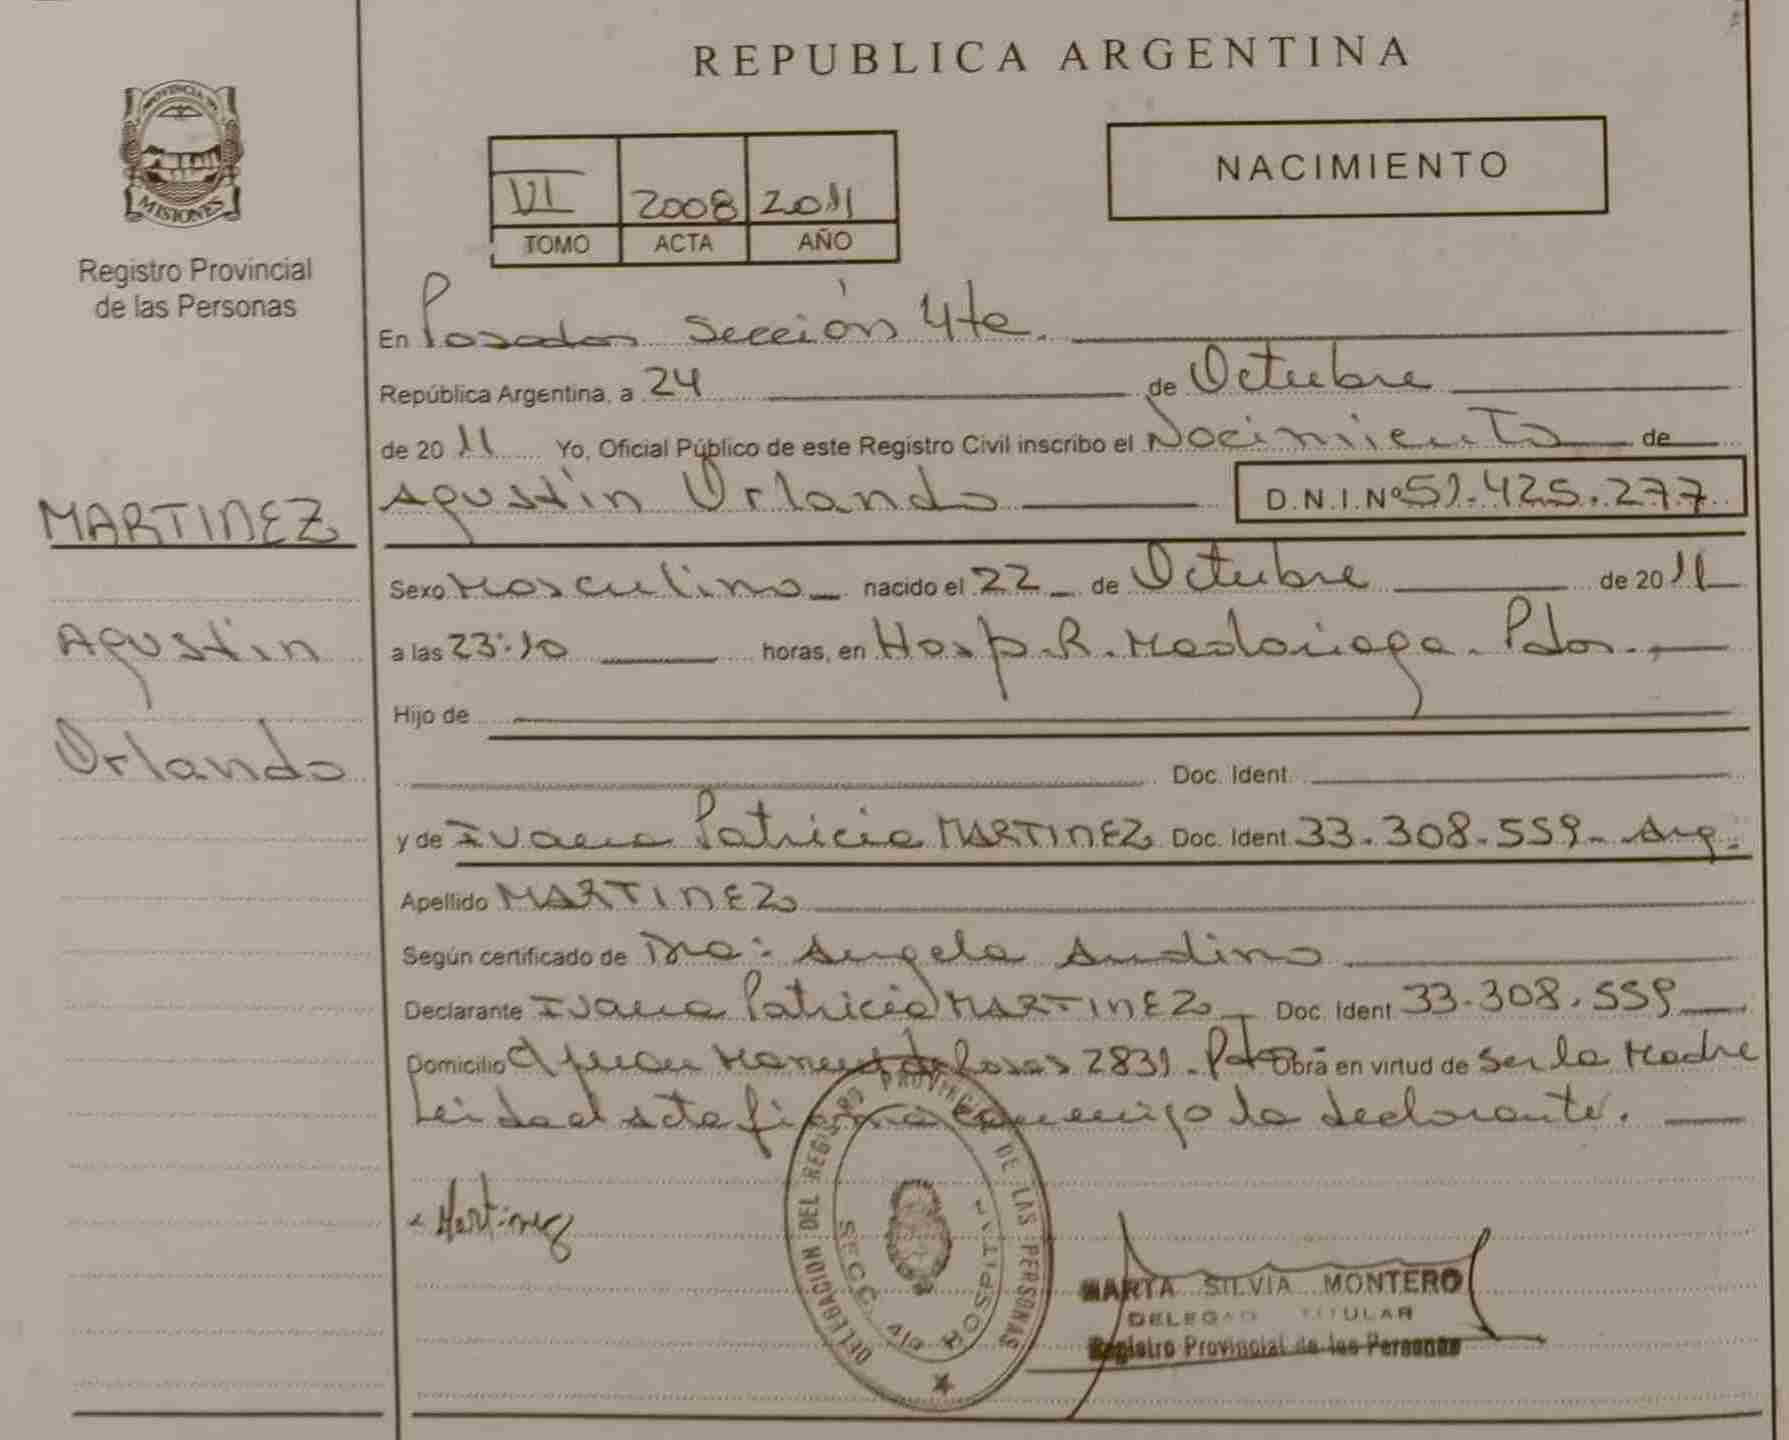 REPUBLICA ARGENTINA
PROVINCIA DE
MISIONES
Registro Provincial
de las Personas
VI 2008 2011
TOMO ACTA AÑO
NACIMIENTO
En Posadas Sección 4ta.
República Argentina, a 24 de Octubre
de 2011 Yo, Oficial Público de este Registro Civil inscribo el Nacimiento de
Agustin Orlando D.N.I.Nº 51.425.277
MARTINEZ
Agustin
Orlando
Sexo Masculino nacido el 22 de Octubre de 2011
a las 23:10 horas, en Hosp. R. Madariaga. Pdas.
Hijo de
Doc. Ident.
y de Ivana Patricia MARTINEZ Doc. Ident. 33.308.559 - Arg.
Apellido MARTINEZ
Según certificado de Dra: Angela Andino
Declarante Ivana Patricia MARTINEZ Doc. Ident 33.308.559
Domicilio Juan Manuel de Rosas 2831 - Pdas Obra en virtud de Ser la Madre
Leida el acta firma conmigo la declarante.
Martinez
DELEGACION DEL REGISTRO PROVINCIAL DE LAS PERSONAS
SECC. 4ta HOSPITAL
MARTA SILVIA MONTERO
DELEGADO TITULAR
Registro Provincial de las Personas